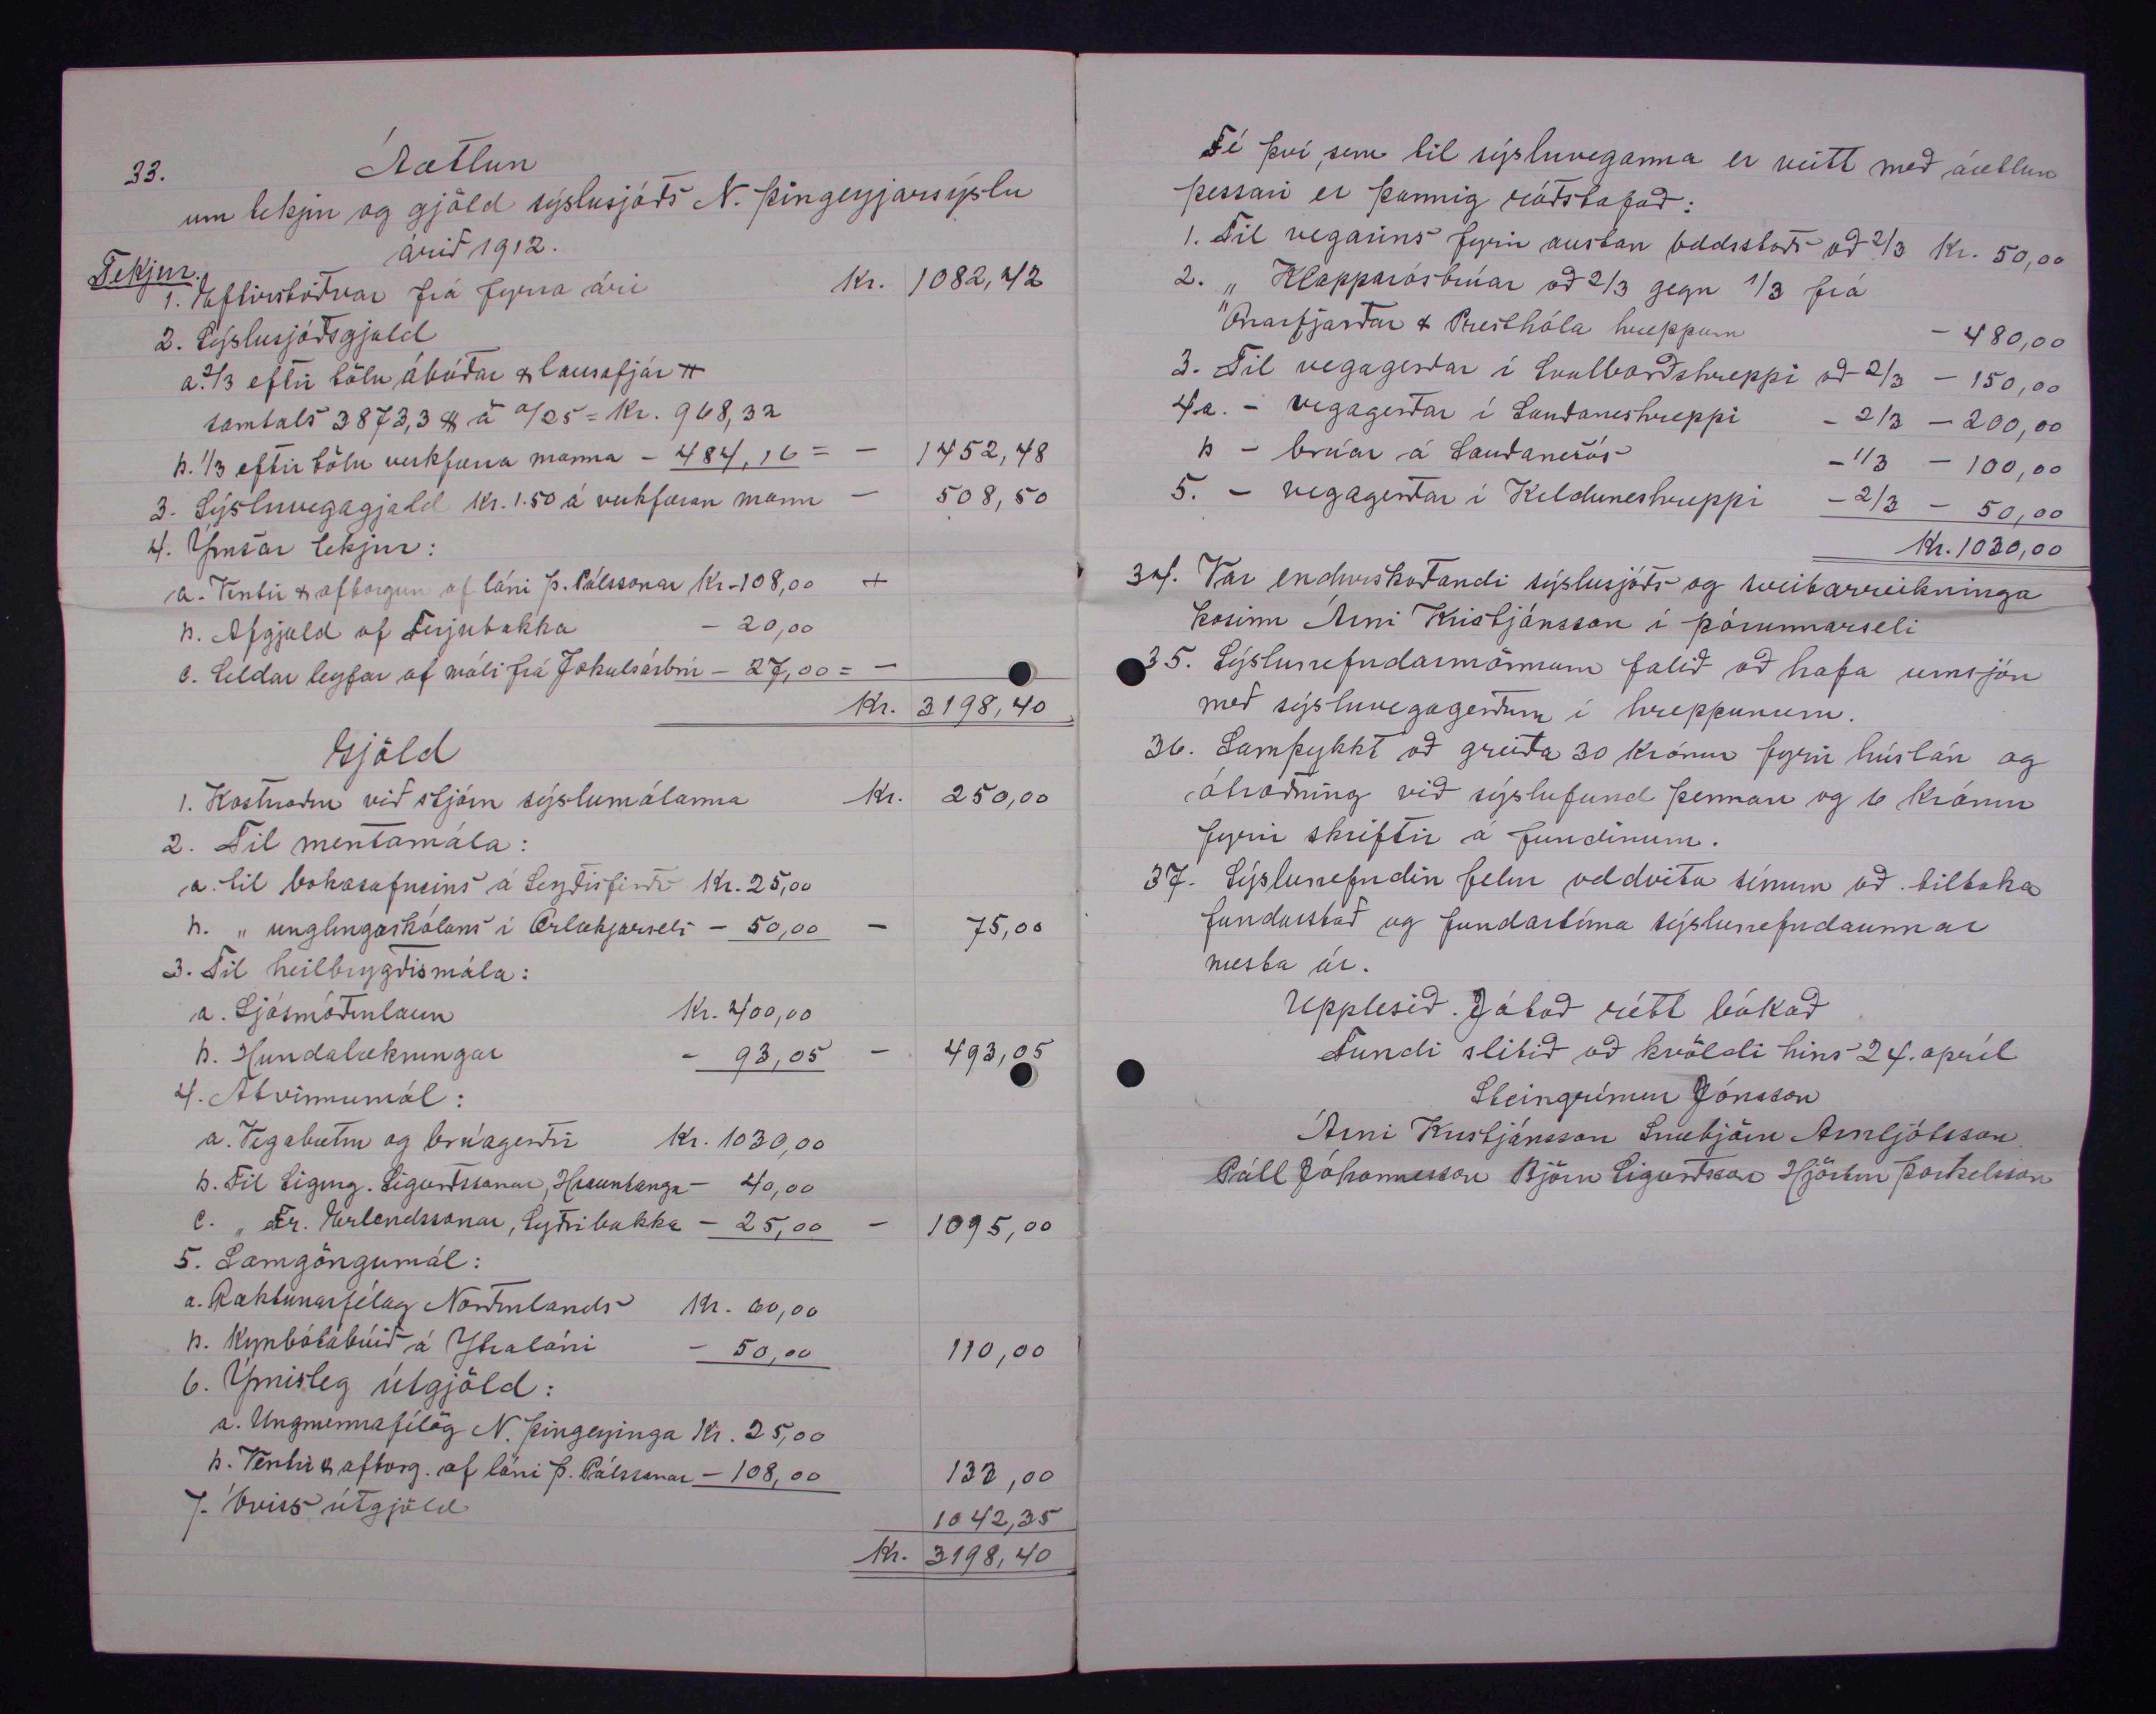 33. Áætlun
um tekjur og gjöld sýslusjóðs N. Þingeyjarsýslu
árið 1912.
Tekjur.
1. Eftirstöðvar frá fyrra ári Kr. 1082,42
2. Sýslusjóðsgjald
a. 2/3 eftir tölu ábúðar & lausafjár
samtals 3873,3 á 0/25 = Kr. 968,32
b. 1/3 eftir tölu verkfærra manna - 484,16 = - 1452,48
3. Sýsluvegagjald Kr. 1.50 á verkfæran mann - 508,50
4. Ýmsar tekjur:
a. Vextir & afborgun af láni Þ. Pálssonar Kr. 108,00 +
b. Afgjald af Ferjubakka - 20,00
c. Seldar leyfar af máli frá Jökulsárbrú - 27,00 = -
Kr. 3198,40
Gjöld
1. Kostnaður við stjórn sýslumálanna Kr. 250,00
2. Til mentamála:
a. til bókasafnsins á Seyðisfirði Kr. 25,00
b. " unglingaskólans í Ærlækjarseli - 50,00 - 75,00
3. Til heilbrygðismála:
a. Ljósmóðurlaun Kr. 400,00
b. Hundalækningar - 93,05 - 493,05
4. Atvinnumál:
a. Vegabætur og brúagerðir Kr. 1030,00
b. Til Sigurg. Sigurðssonar, Hrauntanga - 40,00
c. " Fr. Erlendssonar, Syðribakka - 25,00 - 1095,00
5. Samgöngumál:
a. Ræktunarfélag Norðurlands Kr. 60,00
b. Kynbótabúið á Ytralóni - 50,00 110,00
6. Ýmisleg útgjöld:
a. Ungmennafélög N. Þingeyinga Kr. 25,00
b. Vextir & afborg. af láni Þ. Pálssonar - 108,00 133,00
7. Óviss útgjöld 1042,35
Kr. 3198,40
Fé því, sem til sýsluveganna er veitt með áætlun
þessari er þannig ráðstafað:
1. Til vegarins fyrir austan Oddsstaði að 2/3 Kr. 50,00
2. " Klapparósbrúar að 2/3 gegn 1/3 frá
Öxarfjarðar & Presthóla hreppum - 480,00
3. Til vegagerðar í Svalbarðshreppi að 2/3 - 150,00
4a. - vegagerðar í Sauðaneshreppi - 2/3 - 200,00
b - brúar á Sauðanesós - 1/3 - 100,00
5. - vegagerðar í Kelduneshreppi - 2/3 - 50,00
Kr. 1030,00
34. Var endurskoðandi sýslusjóðs og sveitarreikninga
kosinn Árni Kristjánsson í Þórunnarseli
35. Sýslunefndarmönnum falið að hafa umsjón
með sýsluvegagerðum í hreppunum.
36. Samþykkt að greiða 30 krónur fyrir húslán og
átroðning við sýslufund þennan og 6 krónur
fyrir skriftir á fundinum.
37. Sýslunefndin felur oddvita sínum að tiltaka
fundarstað og fundartíma sýslunefndarinnar
næsta ár.
Upplesið. Játað rétt bókað
Fundi slitið að kvöldi hins 24. apríl
Steingrímur Jónsson
Árni Kristjánsson Snæbjörn Arnljótsson
Páll Jóhannesson Björn Sigurðsson Hjörtur Þorkelsson